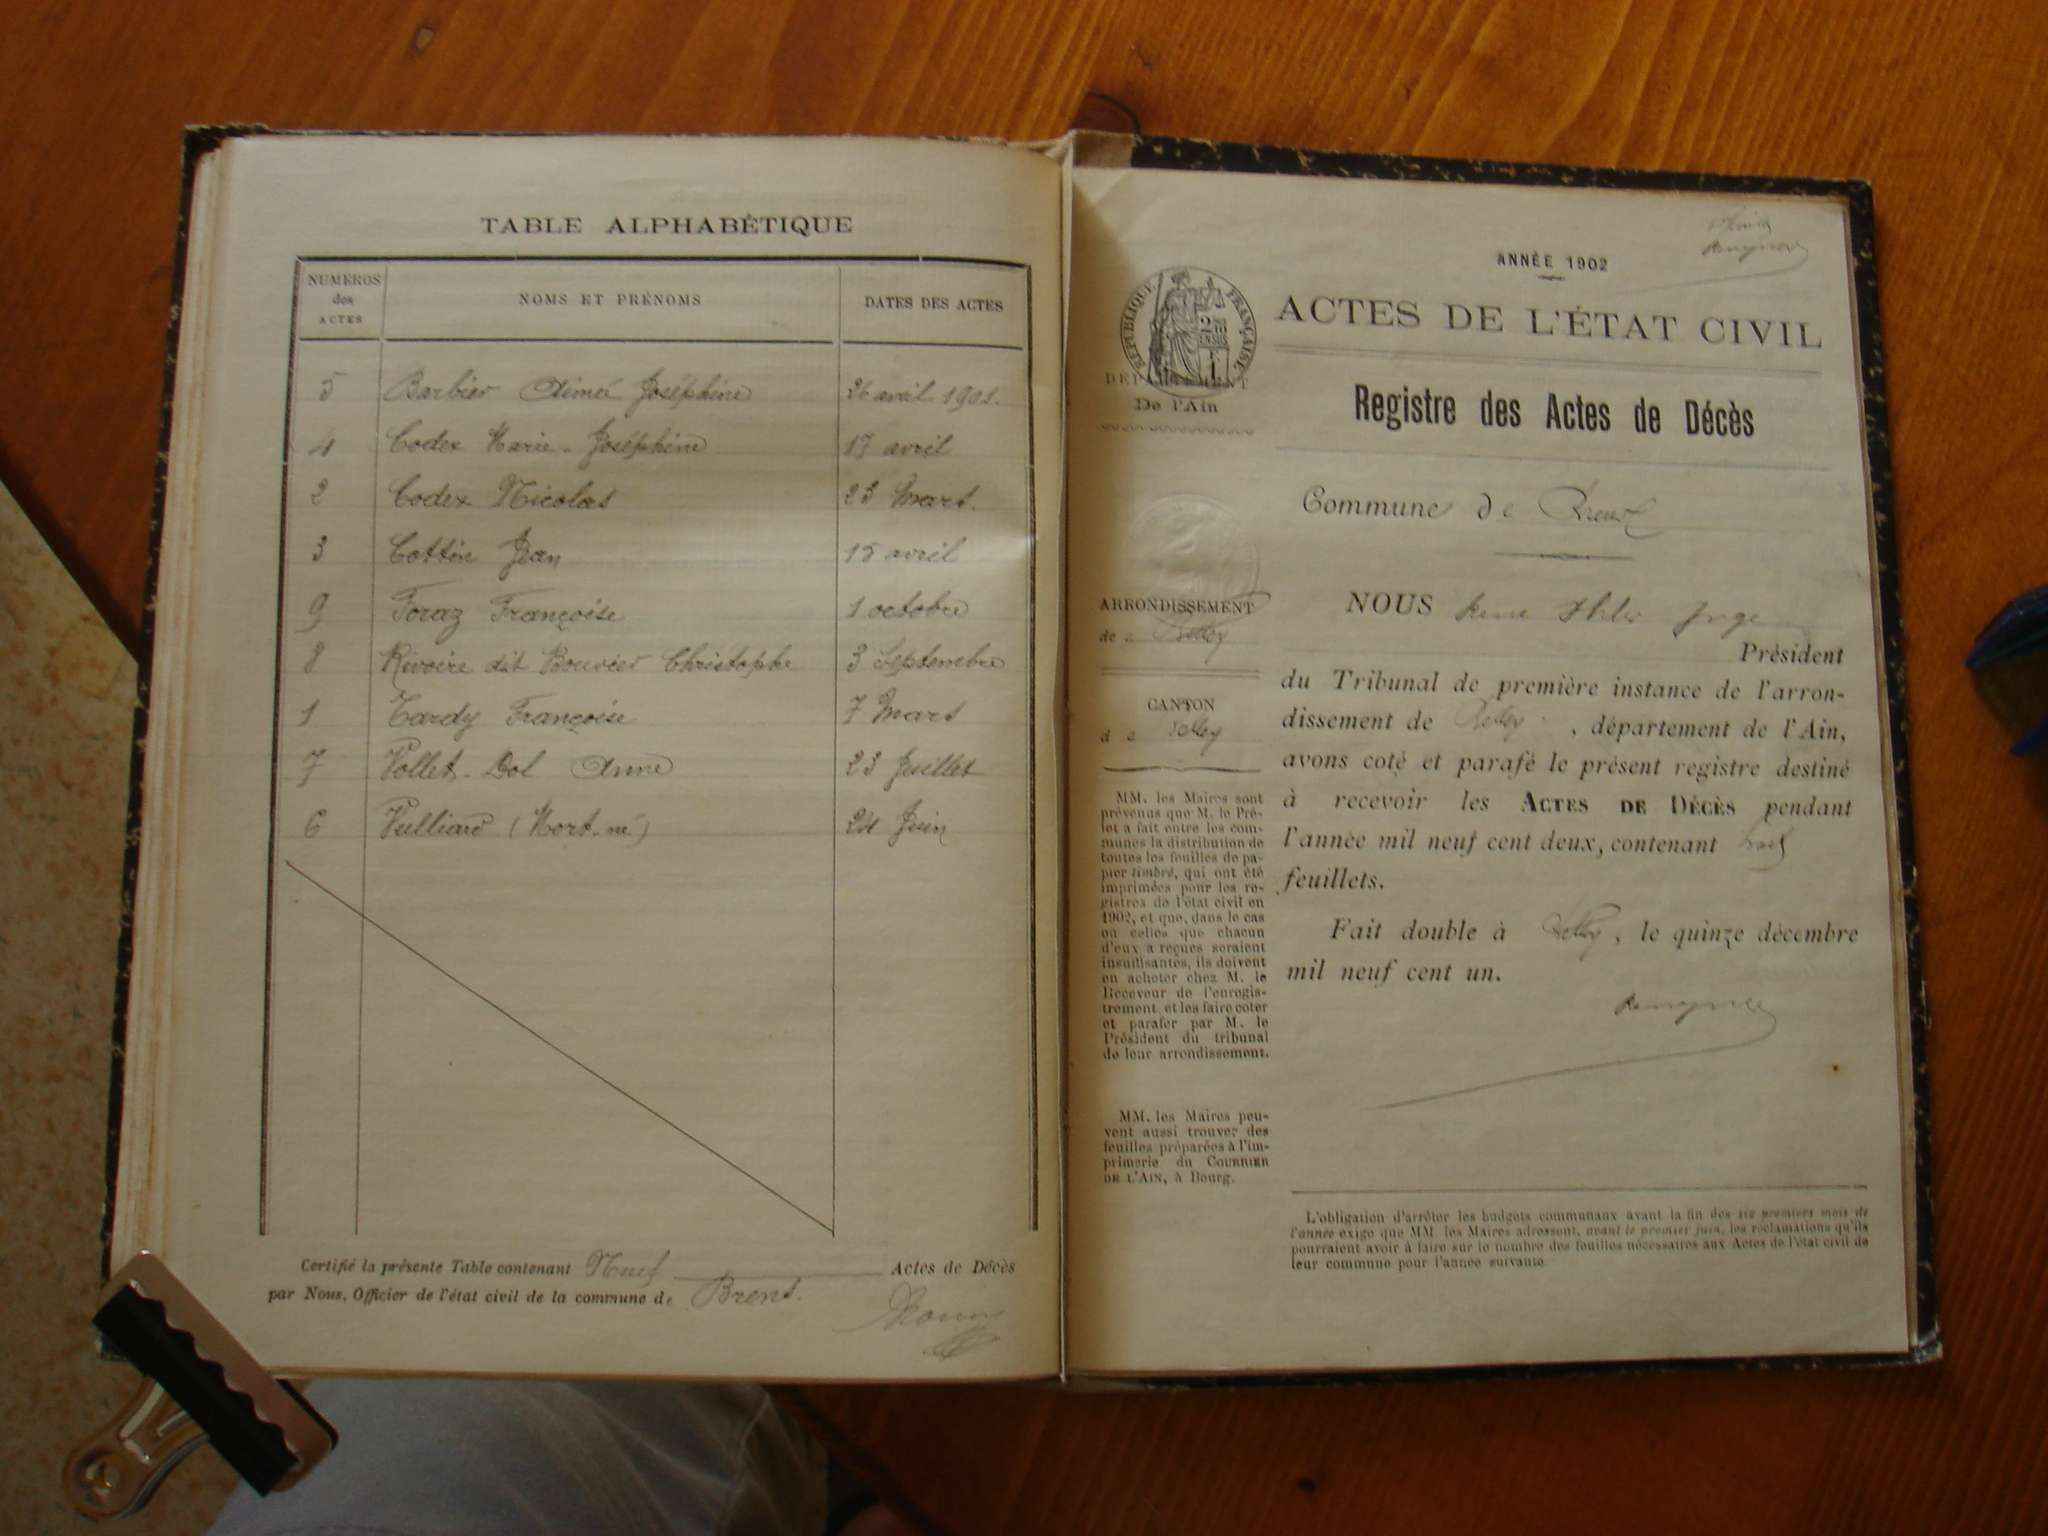 TABLE ALPHABÉTIQUE
NUMÉROS des ACTES NOMS ET PRÉNOMS DATES DES ACTES
5 Barbier Aimée Joséphine 26 avril 1901.
4 Codex Marie-Joséphine 17 avril
2 Codex Nicolas 23 Mars.
3 Cottin Jean 15 avril
9 Foraz Françoise 1 octobre
8 Rivoire dit Bouvier Christophe 3 Septembre
1 Tardy Françoise 7 Mars
7 Vollet-Dol Anne 23 Juillet
6 Vulliard (Mort-né) 24 Juin
Certifié la présente Table contenant Neuf Actes de Décès
par Nous, Officier de l'état civil de la commune de Brens.
ANNÉE 1902
RÉPUBLIQUE FRANÇAISE
ACTES DE L'ÉTAT CIVIL
DÉPARTEMENT
De l'Ain
Registre des Actes de Décès
Commune de Brens
ARRONDISSEMENT
de Belley
CANTON
de Belley
MM. les Maires sont
prévenus que M. le Pré-
fet a fait entre les com-
munes la distribution de
toutes les feuilles de pa-
pier timbré, qui ont été
imprimées pour les re-
gistres de l'état civil en
1902, et que, dans le cas
où celles que chacun
d'eux a reçues seraient
insuffisantes, ils doivent
en acheter chez M. le
Receveur de l'enregis-
trement, et les faire coter
et parafer par M. le
Président du tribunal
de leur arrondissement.
MM. les Maires peu-
vent aussi trouver des
feuilles préparées à l'im-
primerie du COURRIER
DE L'AIN, à Bourg.
NOUS Juge
Président
du Tribunal de première instance de l'arron-
dissement de Belley, département de l'Ain,
avons coté et parafé le présent registre destiné
à recevoir les ACTES DE DÉCÈS pendant
l'année mil neuf cent deux, contenant huit
feuillets.
Fait double à Belley, le quinze décembre
mil neuf cent un.
L'obligation d'arrêter les budgets communaux avant la fin des six premiers mois de
l'année exige que MM. les Maires adressent, avant le premier juin, les réclamations qu'ils
pourraient avoir à faire sur le nombre des feuilles nécessaires aux Actes de l'état civil de
leur commune pour l'année suivante.